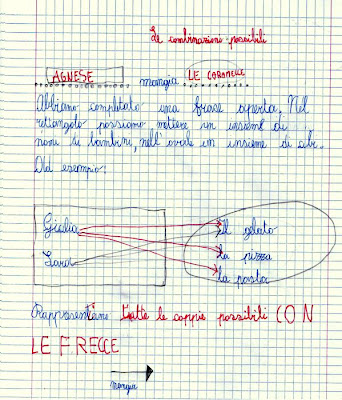 Le combinazioni possibili
AGNESE mangia LE CAROMELLE
Abbiamo completato una frase aperta. Nel
rettangolo possiamo mettere un insieme di
nomi di bambini, nell'ovale un insieme di cibi.
Ad esempio:
Giulia Il gelato
Sara la pizza
la pasta
Rappresentiamo tutte le coppie possibili CON
LE FRECCE
mangia